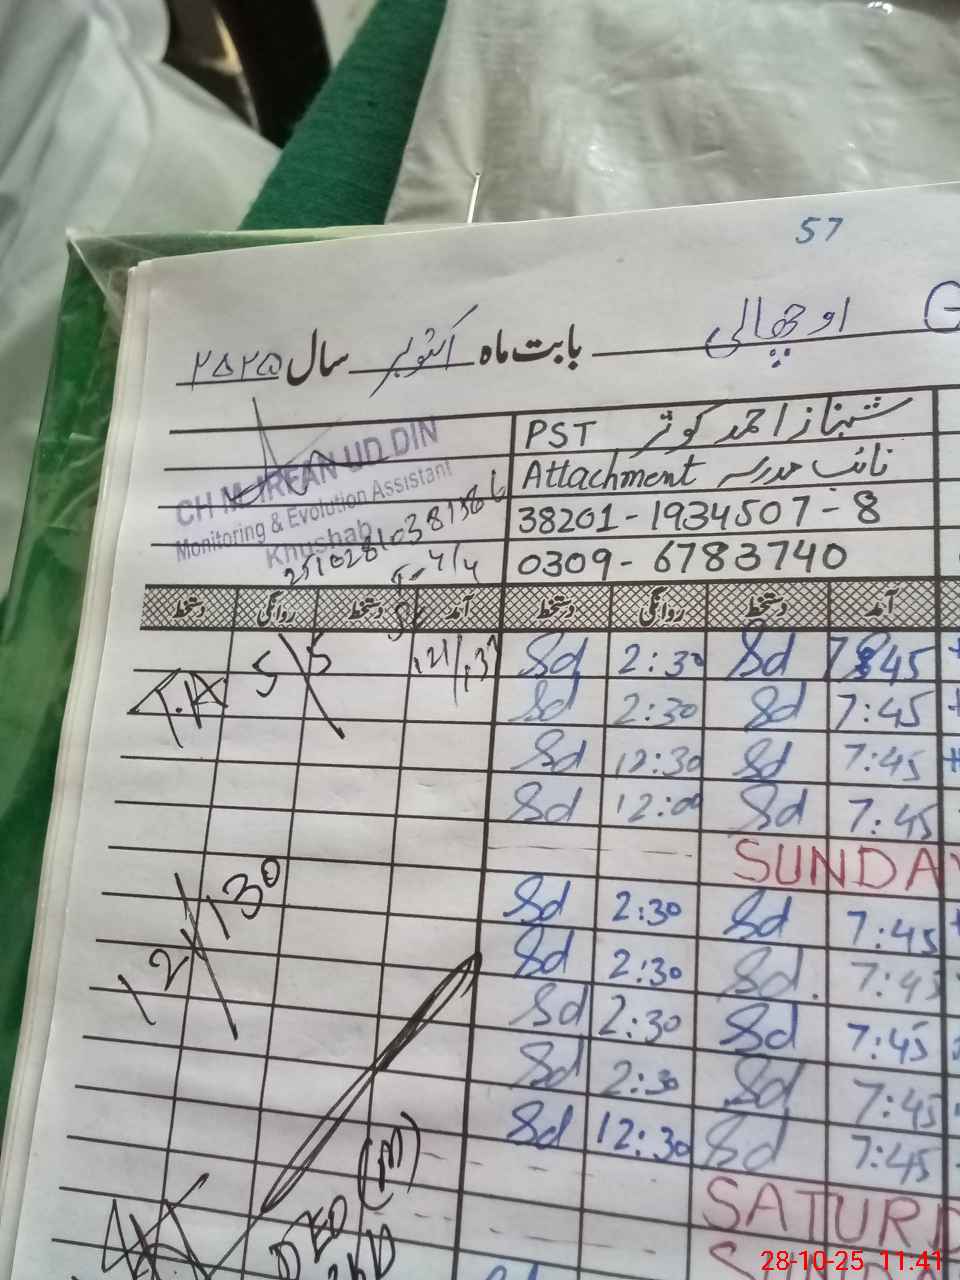 57
اوچھالی بابت ماہ اکتوبر سال ۲۰۲۵
PST شہباز احمد کوثر
Attachment نائب مدرسہ
38201-1934507-8
0309-6783740
CH M. IRFAN UD DIN
Monitoring & Evolution Assistant
Khushab
آمد دستخط روانگی دستخط آمد دستخط روانگی دستخط
Sd 2:30 Sd 7:45
Sd 2:30 Sd 7:45
Sd 12:30 Sd 7:45
Sd 12:00 Sd 7:45
SUNDAY
Sd 2:30 Sd 7:45
Sd 2:30 Sd. 7:45
Sd 2:30 Sd 7:45
Sd 2:30 Sd 7:45
Sd 12:30 Sd 7:45
SATURD
12/130
DEO (M)
KHD
28-10-25 11:41